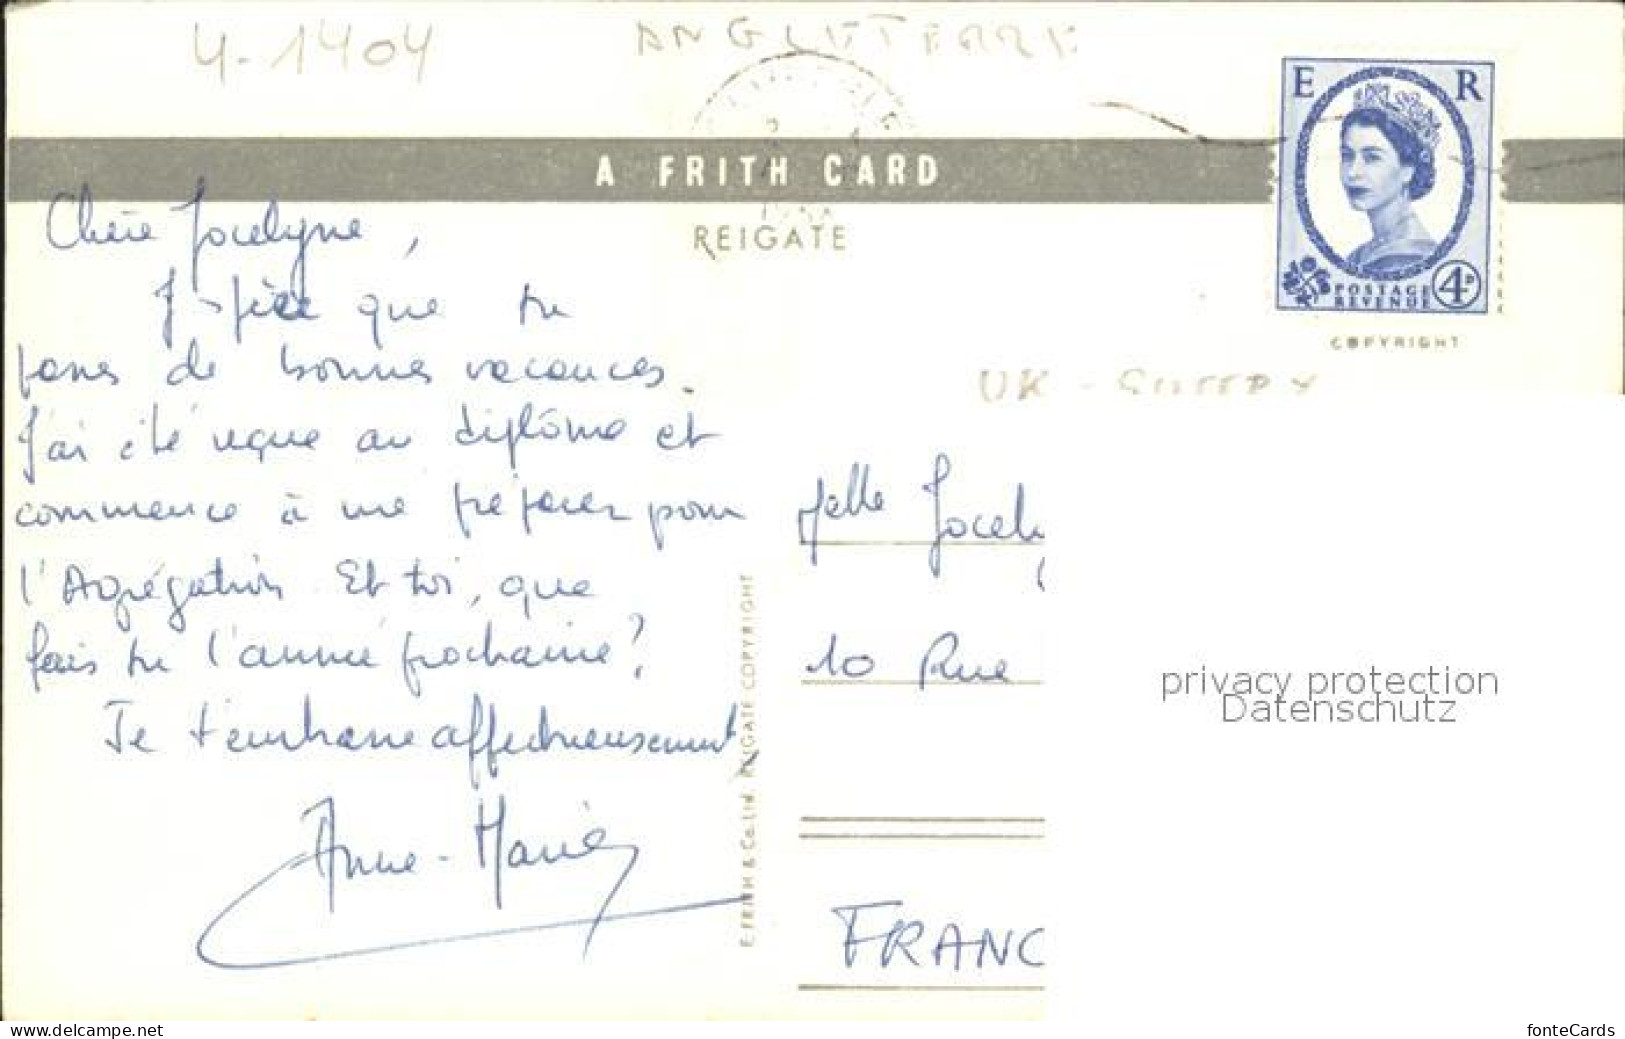 4-1404
ANGLETERRE
E R
A FRITH CARD
REIGATE
POSTAGE
REVENUE
4D
COPYRIGHT
UK -
Chère Jocelyne,
J'espère que tu
passes de bonnes vacances.
J'ai été reçue au diplôme et
commence à me préparer pour
l'Agrégation. Et toi, que
fais tu l'année prochaine?
Je t'embrasse affectueusement
Anne-Marie
F. FRITH & Co. Ltd. REIGATE COPYRIGHT
Melle Jocely
10 Rue
FRANC
privacy protection
Datenschutz
www.delcampe.net
fonteCards